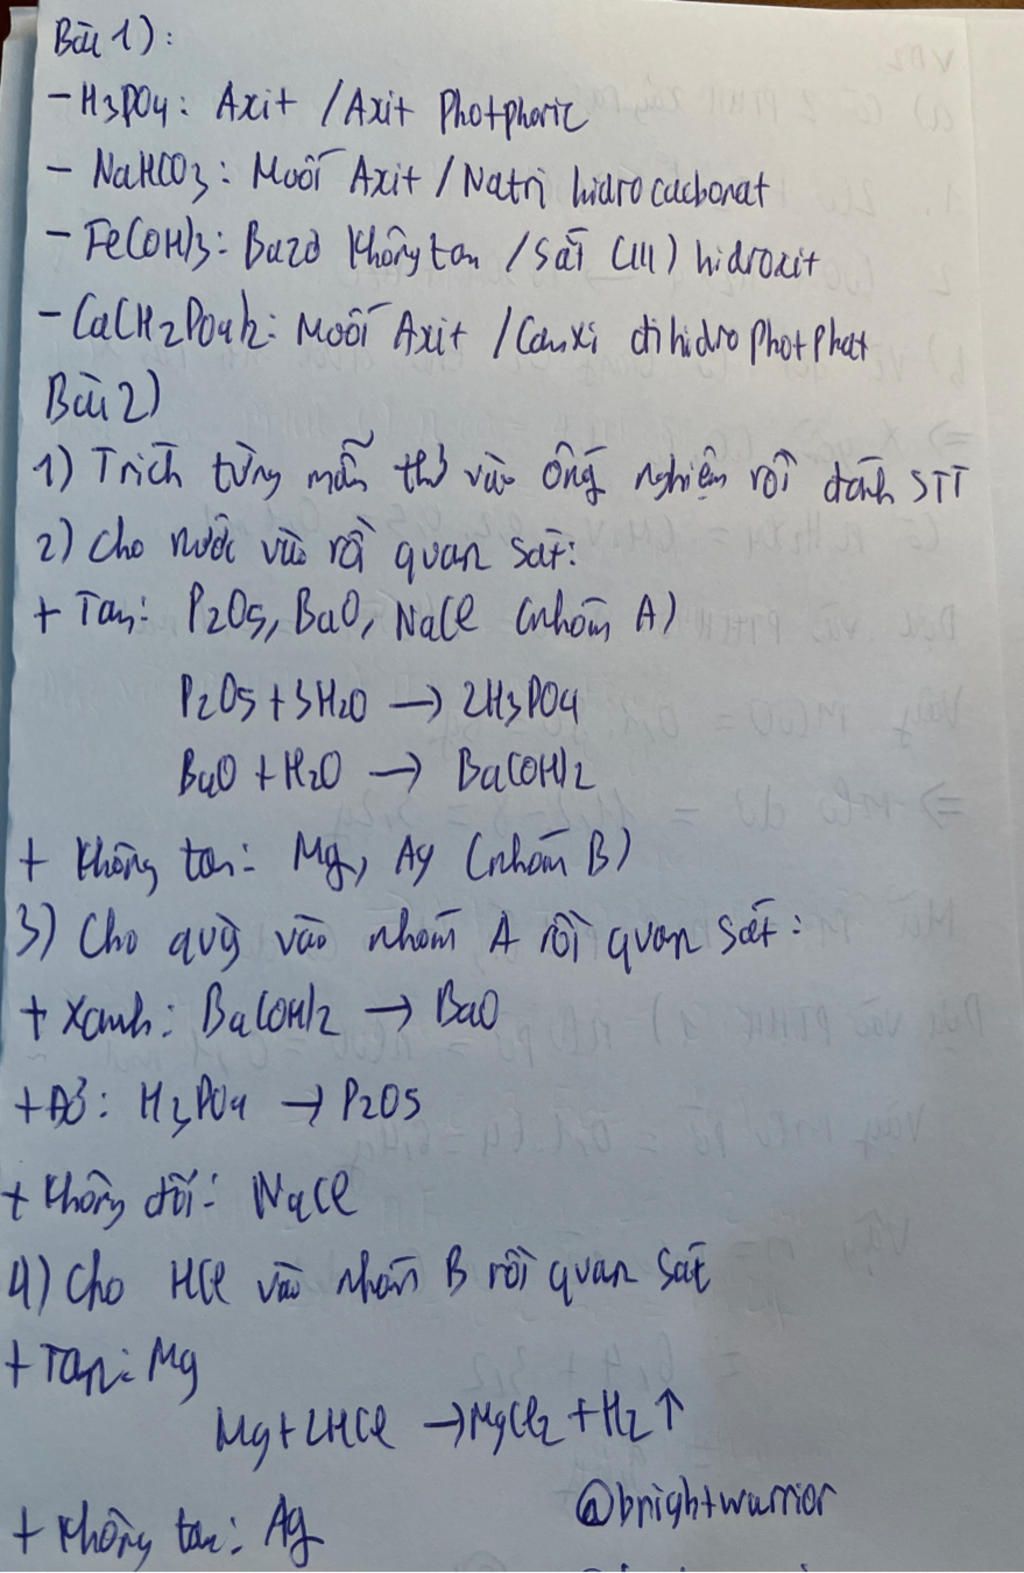 Bài 1):
- H3PO4: Axit / Axit Photphoric
- NaHCO3: Muối Axit / Natri hidrocacbonat
- Fe(OH)3: Bazơ không tan / Sắt (III) hidroxit
- Ca(H2PO4)2: Muối Axit / Canxi đihidro photphat
Bài 2)
1) Trích từng mẫu thử vào ống nghiệm rồi đánh STT
2) Cho nước vào rồi quan sát:
+ Tan: P2O5, BaO, NaCl (nhóm A)
P2O5 + 3H2O → 2H3PO4
BaO + H2O → Ba(OH)2
+ Không tan: Mg, Ag (nhóm B)
3) Cho quỳ vào nhóm A rồi quan sát:
+ Xanh: Ba(OH)2 → BaO
+ Đỏ: H3PO4 → P2O5
+ Không đổi: NaCl
4) Cho HCl vào nhóm B rồi quan sát
+ Tan: Mg
Mg + 2HCl → MgCl2 + H2 ↑
@brightwarrior
+ Không tan: Ag